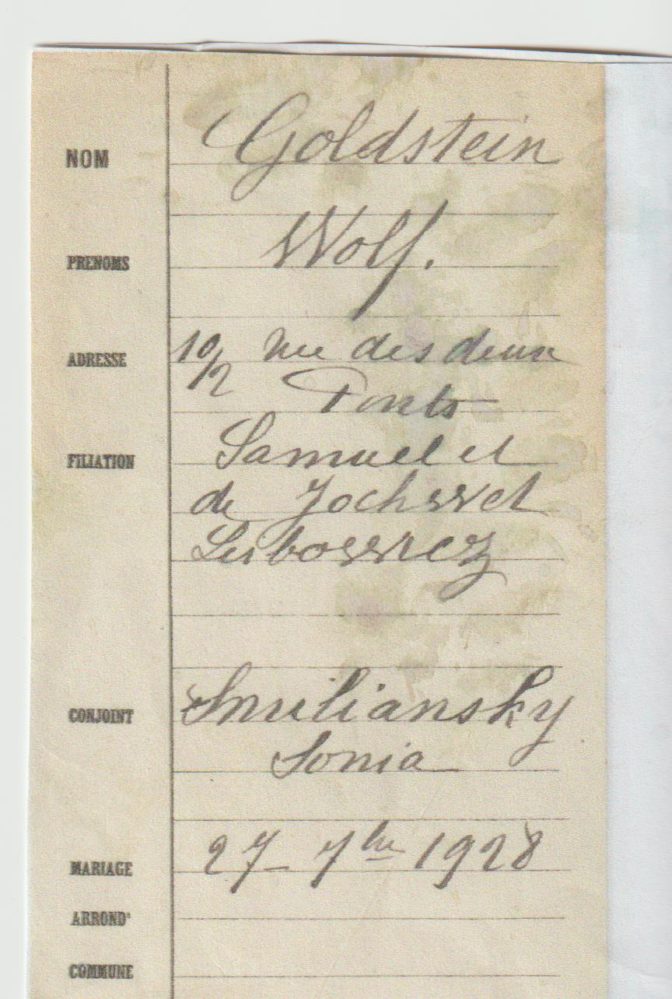 NOM Goldstein
PRENOMS Wolf.
ADRESSE 10/2 rue des deux
Ponts
FILIATION Samuel et
de
CONJOINT Smuliansky
Sonia
MARIAGE 27 7bre 1928
ARRONDt
COMMUNE